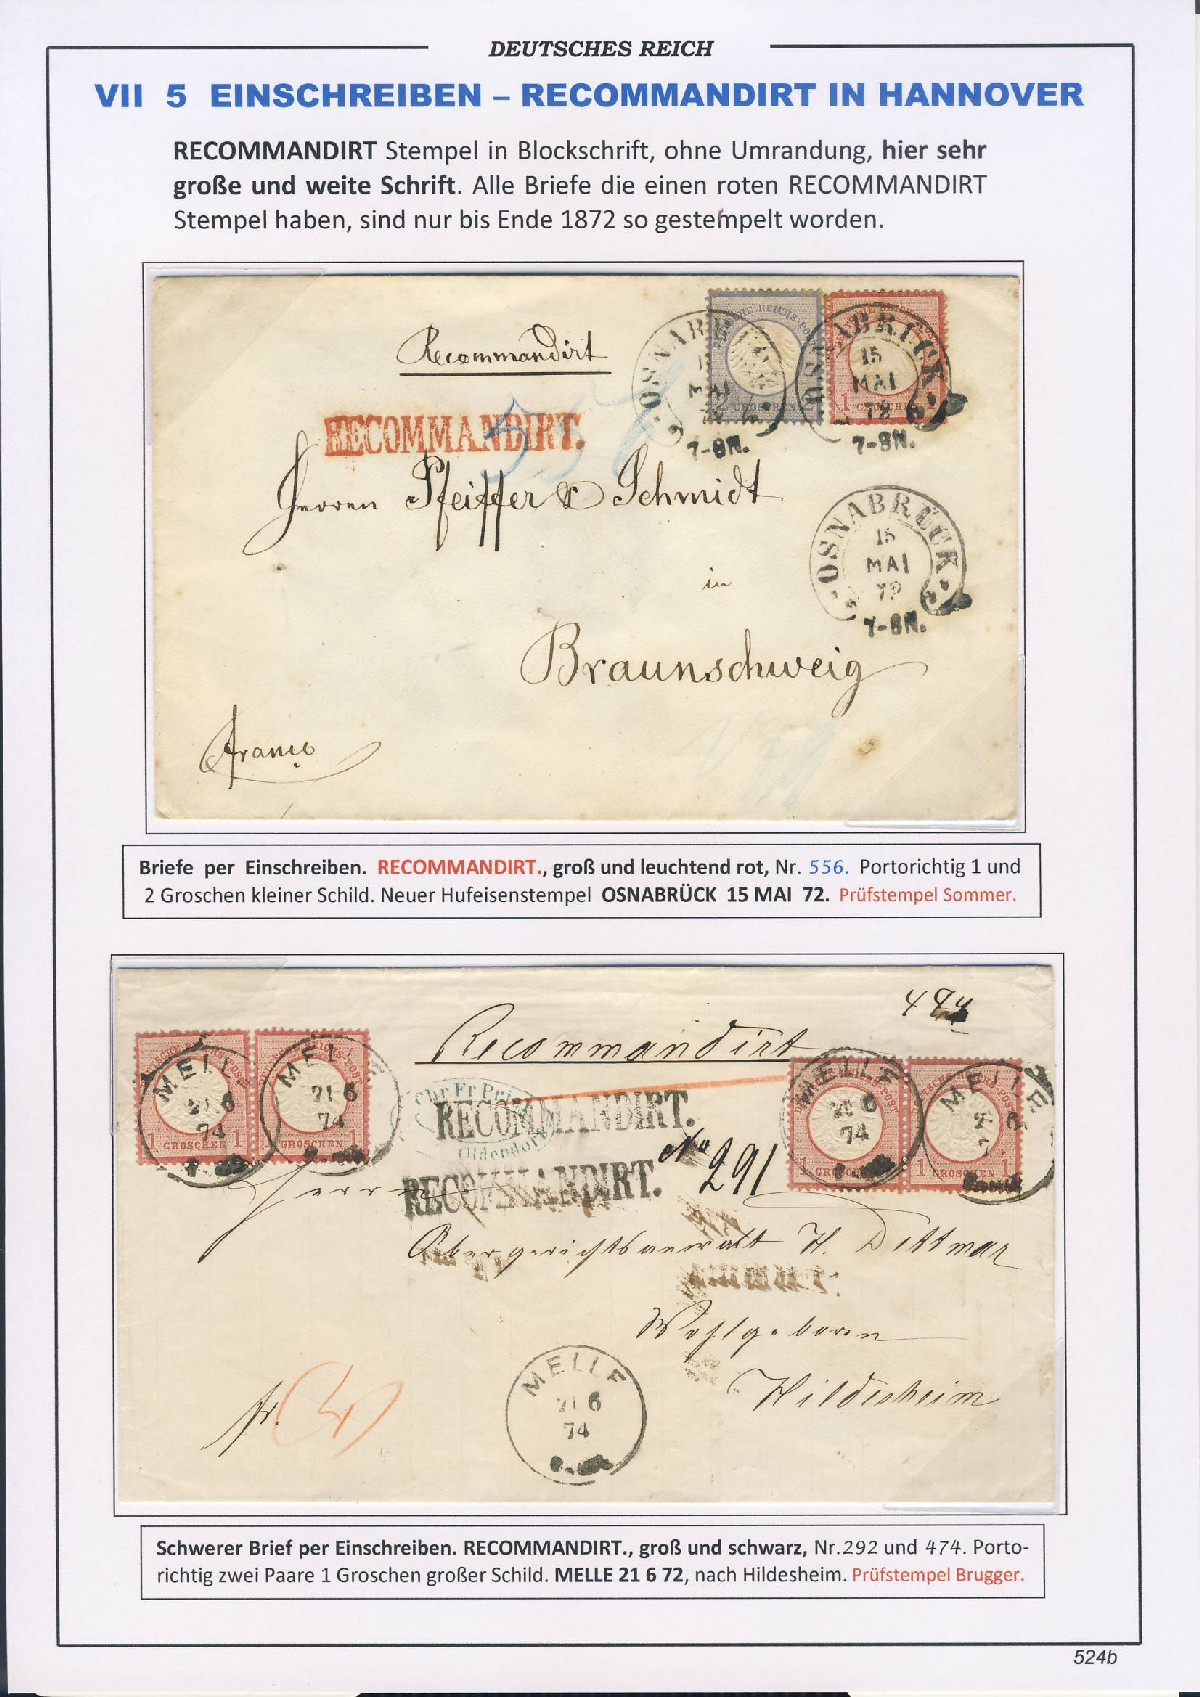 DEUTSCHES REICH
VII 5 EINSCHREIBEN – RECOMMANDIRT IN HANNOVER
RECOMMANDIRT Stempel in Blockschrift, ohne Umrandung, hier sehr
große und weite Schrift. Alle Briefe die einen roten RECOMMANDIRT
Stempel haben, sind nur bis Ende 1872 so gestempelt worden.
Recommandirt
OSNABRÜCK
15
MAI
72
7-8N.
GROSCHEN
1
RECOMMANDIRT.
Herren Pfeiffer & Schmidt
OSNABRÜCK
15
MAI
72
7-8N.
in
Braunschweig
Franco
Briefe per Einschreiben. RECOMMANDIRT., groß und leuchtend rot, Nr. 556. Portorichtig 1 und
2 Groschen kleiner Schild. Neuer Hufeisenstempel OSNABRÜCK 15 MAI 72. Prüfstempel Sommer.
Recommandirt
MELLE
21 6
74
1 GROSCHEN 1
MELLE
21 6
74
GROSCHEN
Oldendorf
RECOMMANDIRT.
MELLE
21 6
74
1 GROSCHEN
MELLE
RECOMMANDIRT.
No 291
Herrn
Obergerichtsanwalt H. Dittmar
Wohlgeboren
Hildesheim
MELLE
21 6
74
fr.
Schwerer Brief per Einschreiben. RECOMMANDIRT., groß und schwarz, Nr.292 und 474. Porto-
richtig zwei Paare 1 Groschen großer Schild. MELLE 21 6 72, nach Hildesheim. Prüfstempel Brugger.
524b